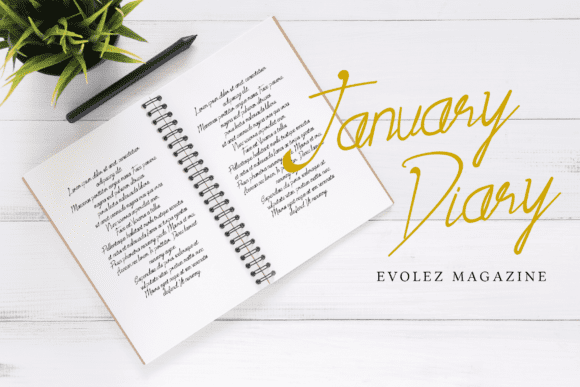 Lorem ipsum dolor sit amet, consectetuer
adipiscing elit.
Maecenas porttitor congue massa. Fusce posuere,
magna sed pulvinar ultricies,
purus lectus malesuada libero,
sit amet commodo magna eros quis urna.
Nunc viverra imperdiet enim.
Fusce est. Vivamus a tellus.
Pellentesque habitant morbi tristique senectus
et netus et malesuada fames ac turpis egestas.
Proin pharetra nonummy pede. Mauris et orci.
Aenean nec lorem. In porttitor. Donec laoreet
nonummy augue.
Suspendisse dui purus, scelerisque at,
vulputate vitae, pretium mattis, nunc.
Mauris eget neque at sem venenatis
eleifend. Ut nonummy.
Lorem ipsum dolor sit amet, consectetuer
adipiscing elit.
Maecenas porttitor congue massa. Fusce posuere,
magna sed pulvinar ultricies,
purus lectus malesuada libero,
sit amet commodo magna eros quis urna.
Nunc viverra imperdiet enim.
Fusce est. Vivamus a tellus.
Pellentesque habitant morbi tristique senectus
et netus et malesuada fames ac turpis egestas.
Proin pharetra nonummy pede. Mauris et orci.
Aenean nec lorem. In porttitor. Donec laoreet
nonummy augue.
Suspendisse dui purus, scelerisque at,
vulputate vitae, pretium mattis, nunc.
Mauris eget neque at sem venenatis
eleifend. Ut nonummy.
January
Diary
EVOLEZ MAGAZINE